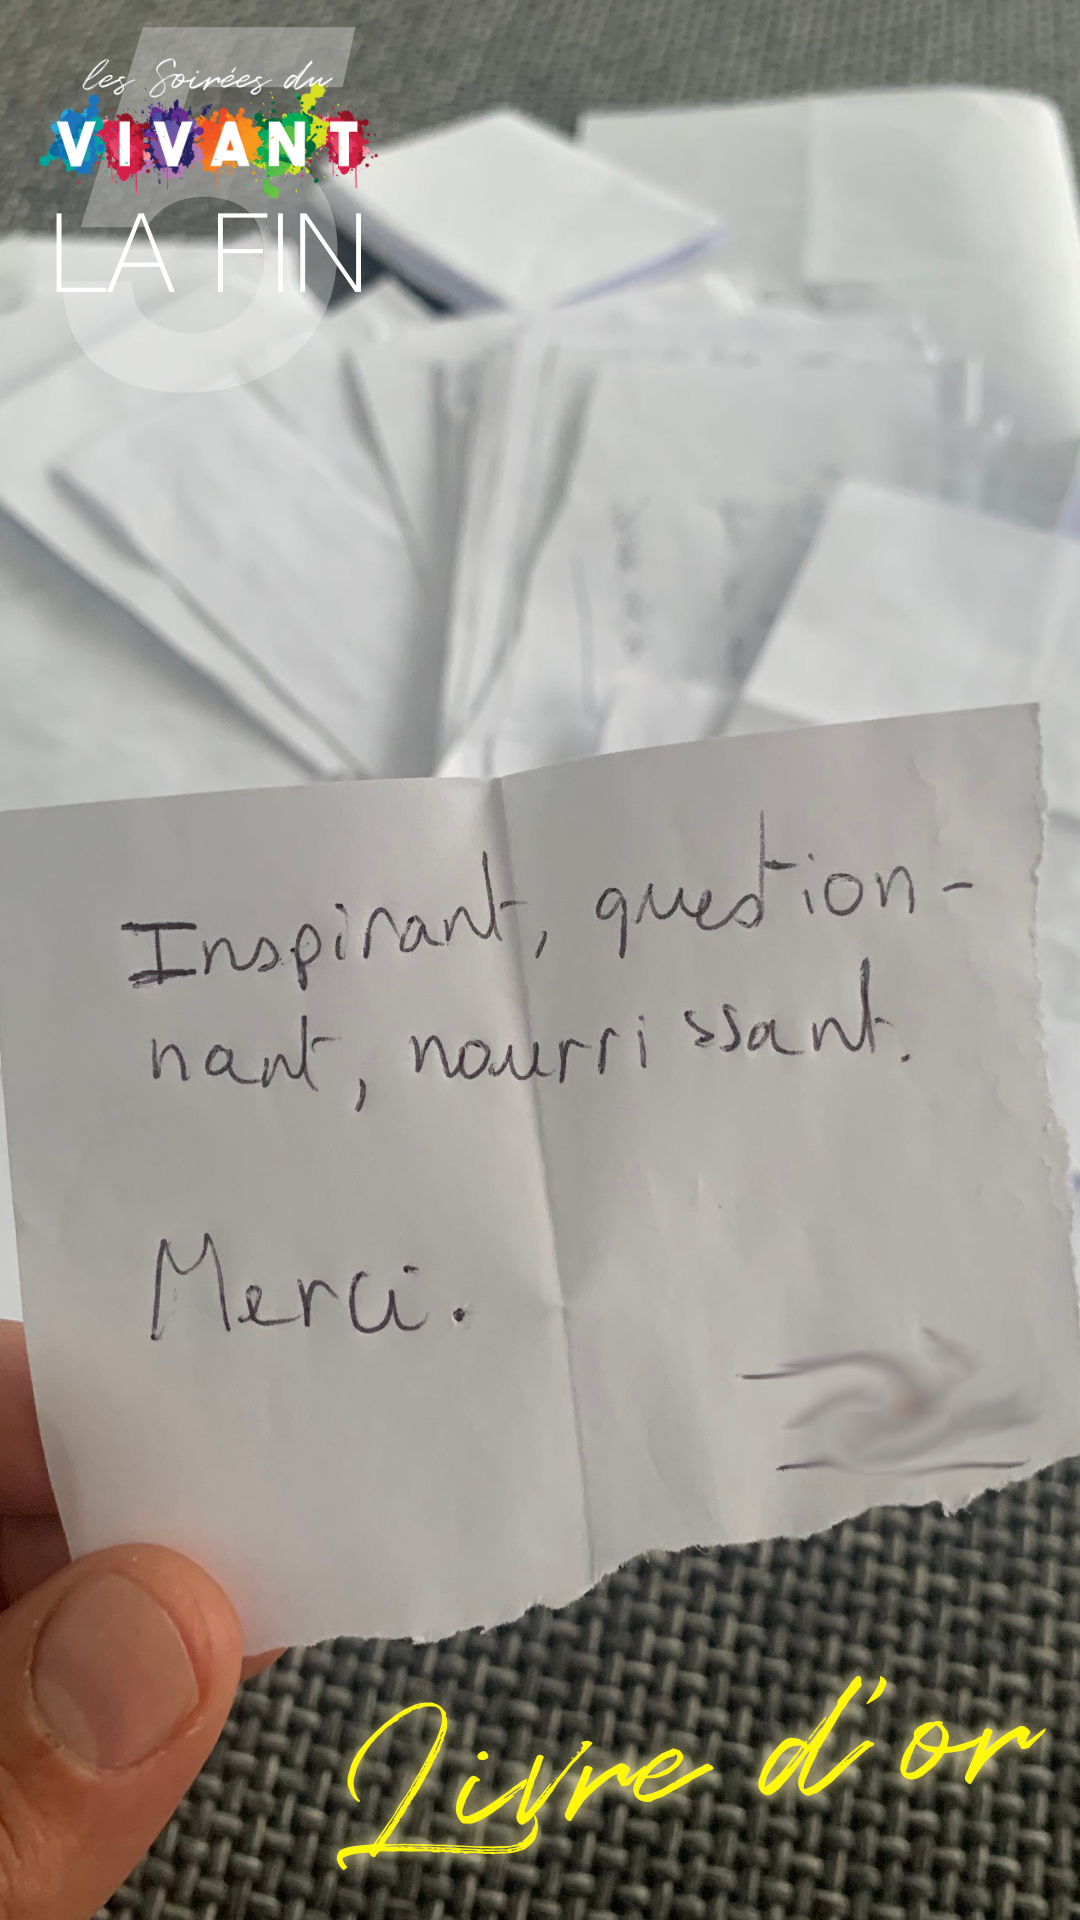 les Soirées du
VIVANT
5
LA FIN
Inspirant, question-
nant, nourrissant.
Merci.
Livre d'or